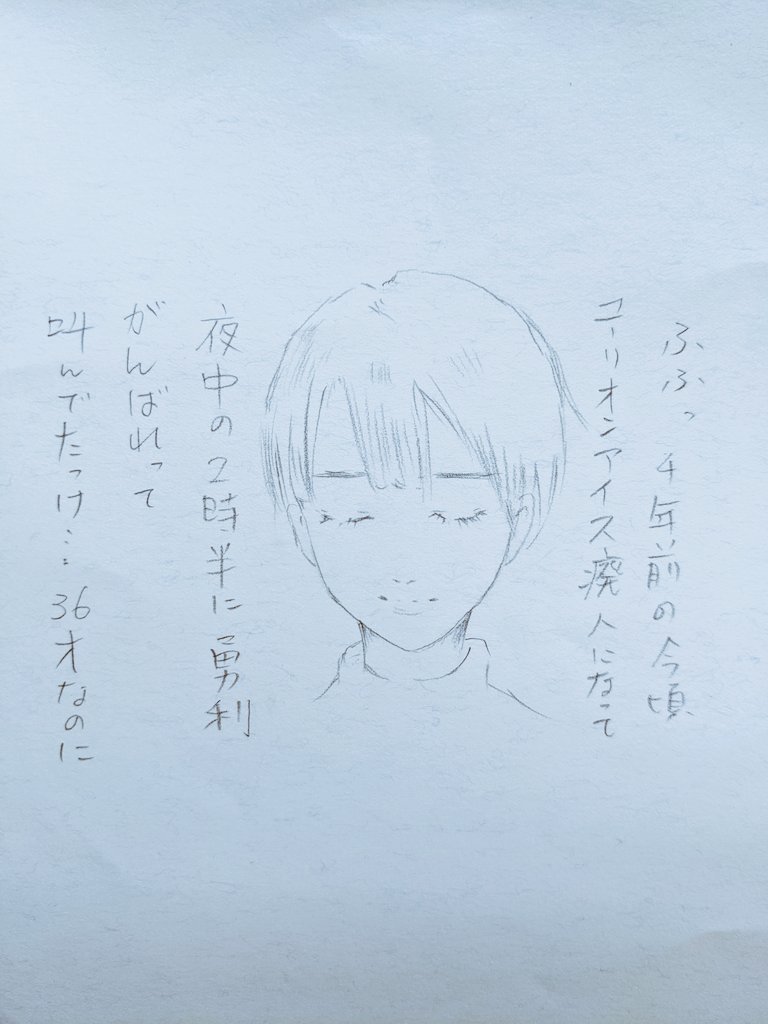 ふふっ 4年前の今頃
ユーリオンアイス廃人になって
夜中の2時半に勇利
がんばれって
叫んでたっけ… 36才なのに